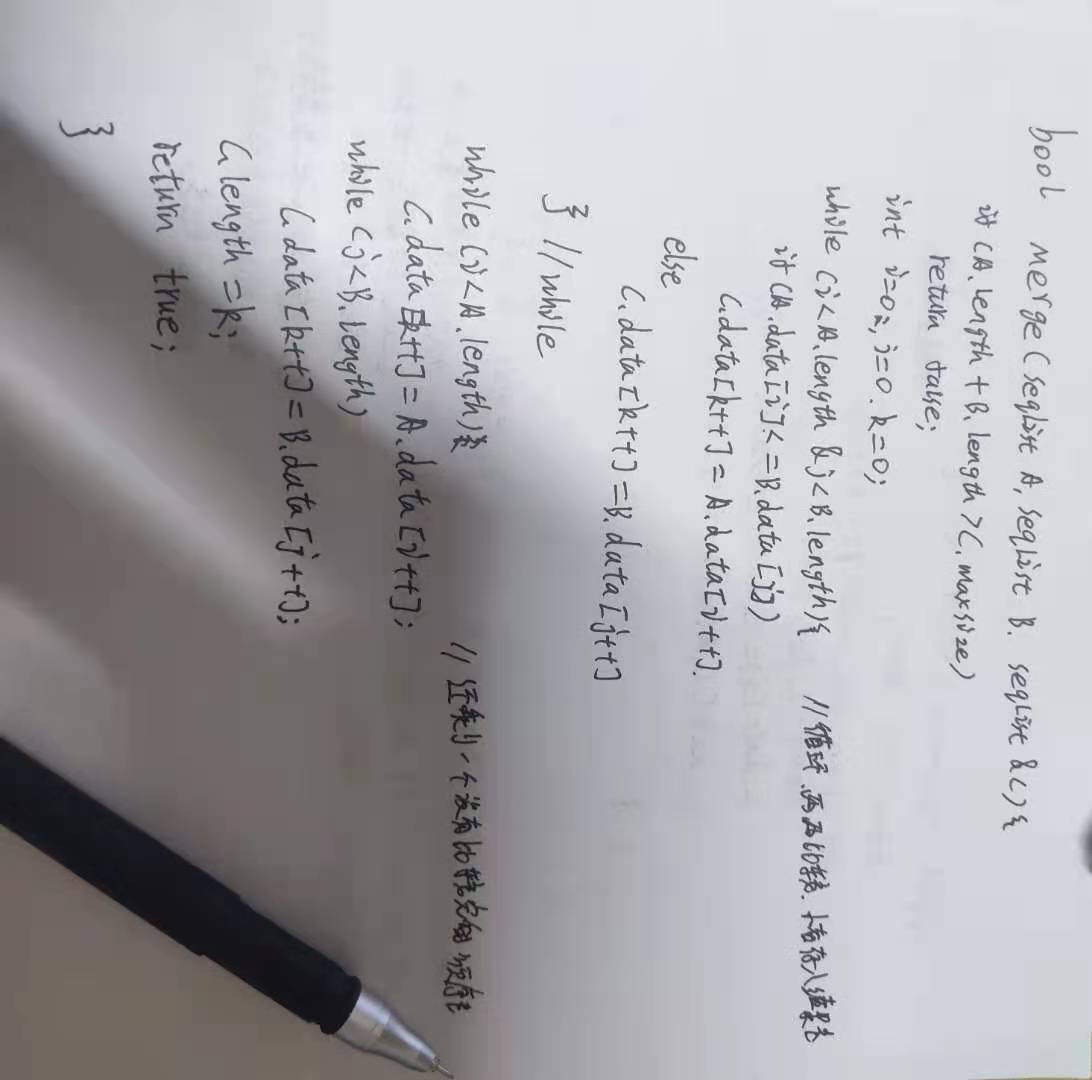 bool merge(SeqList A, SeqList B. SeqList &C){
if (A.length + B.length > C.maxsize)
return false;
int i=0, j=0. k=0;
while (i<A.length & j<B.length){ //循环.两两比较.小者存入结果表
if(A.data[i]<=B.data[j])
C.data[k++]=A.data[i++].
else
C.data[k++]=B.data[j++]
} //while
while (i<A.length) //还剩一个没有比较完的顺序表
C.data[k++]=A.data[i++];
while (j<B.length)
C.data[k++]=B.data[j++];
C.length=k;
return true;
}